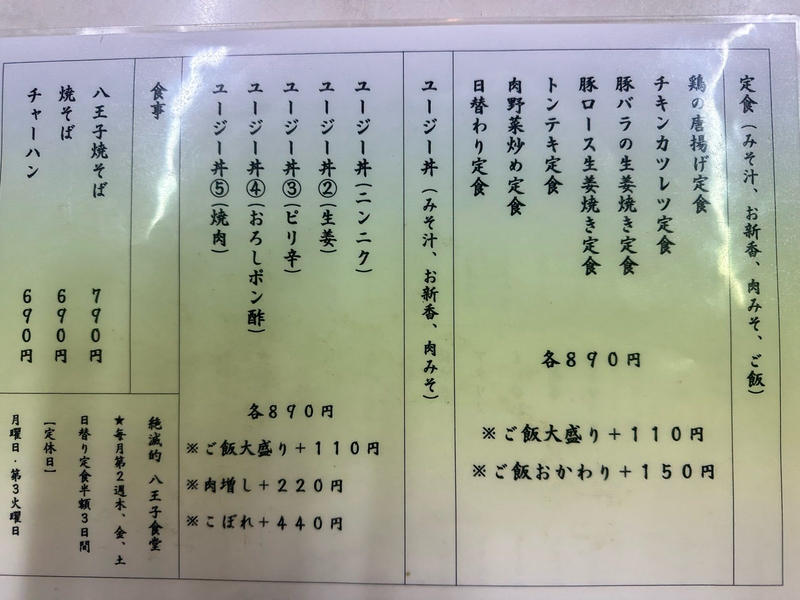 定食(みそ汁、お新香、肉みそ、ご飯)
鶏の唐揚げ定食
チキンカツレツ定食
豚バラの生姜焼き定食
豚ロース生姜焼き定食
トンテキ定食
肉野菜炒め定食
日替わり定食
各890円
※ご飯大盛り+110円
※ご飯おかわり+150円
ユージー丼(みそ汁、お新香、肉みそ)
ユージー丼(ニンニク)
ユージー丼②(生姜)
ユージー丼③(ピリ辛)
ユージー丼④(おろしポン酢)
ユージー丼⑤(焼肉)
各890円
※ご飯大盛り+110円
※肉増し+220円
※こぼれ+440円
食事
八王子焼そば 790円
焼そば 690円
チャーハン 690円
絶滅的 八王子食堂
★毎月第2週木、金、土
日替り定食半額3日間
[定休日]
月曜日・第3火曜日